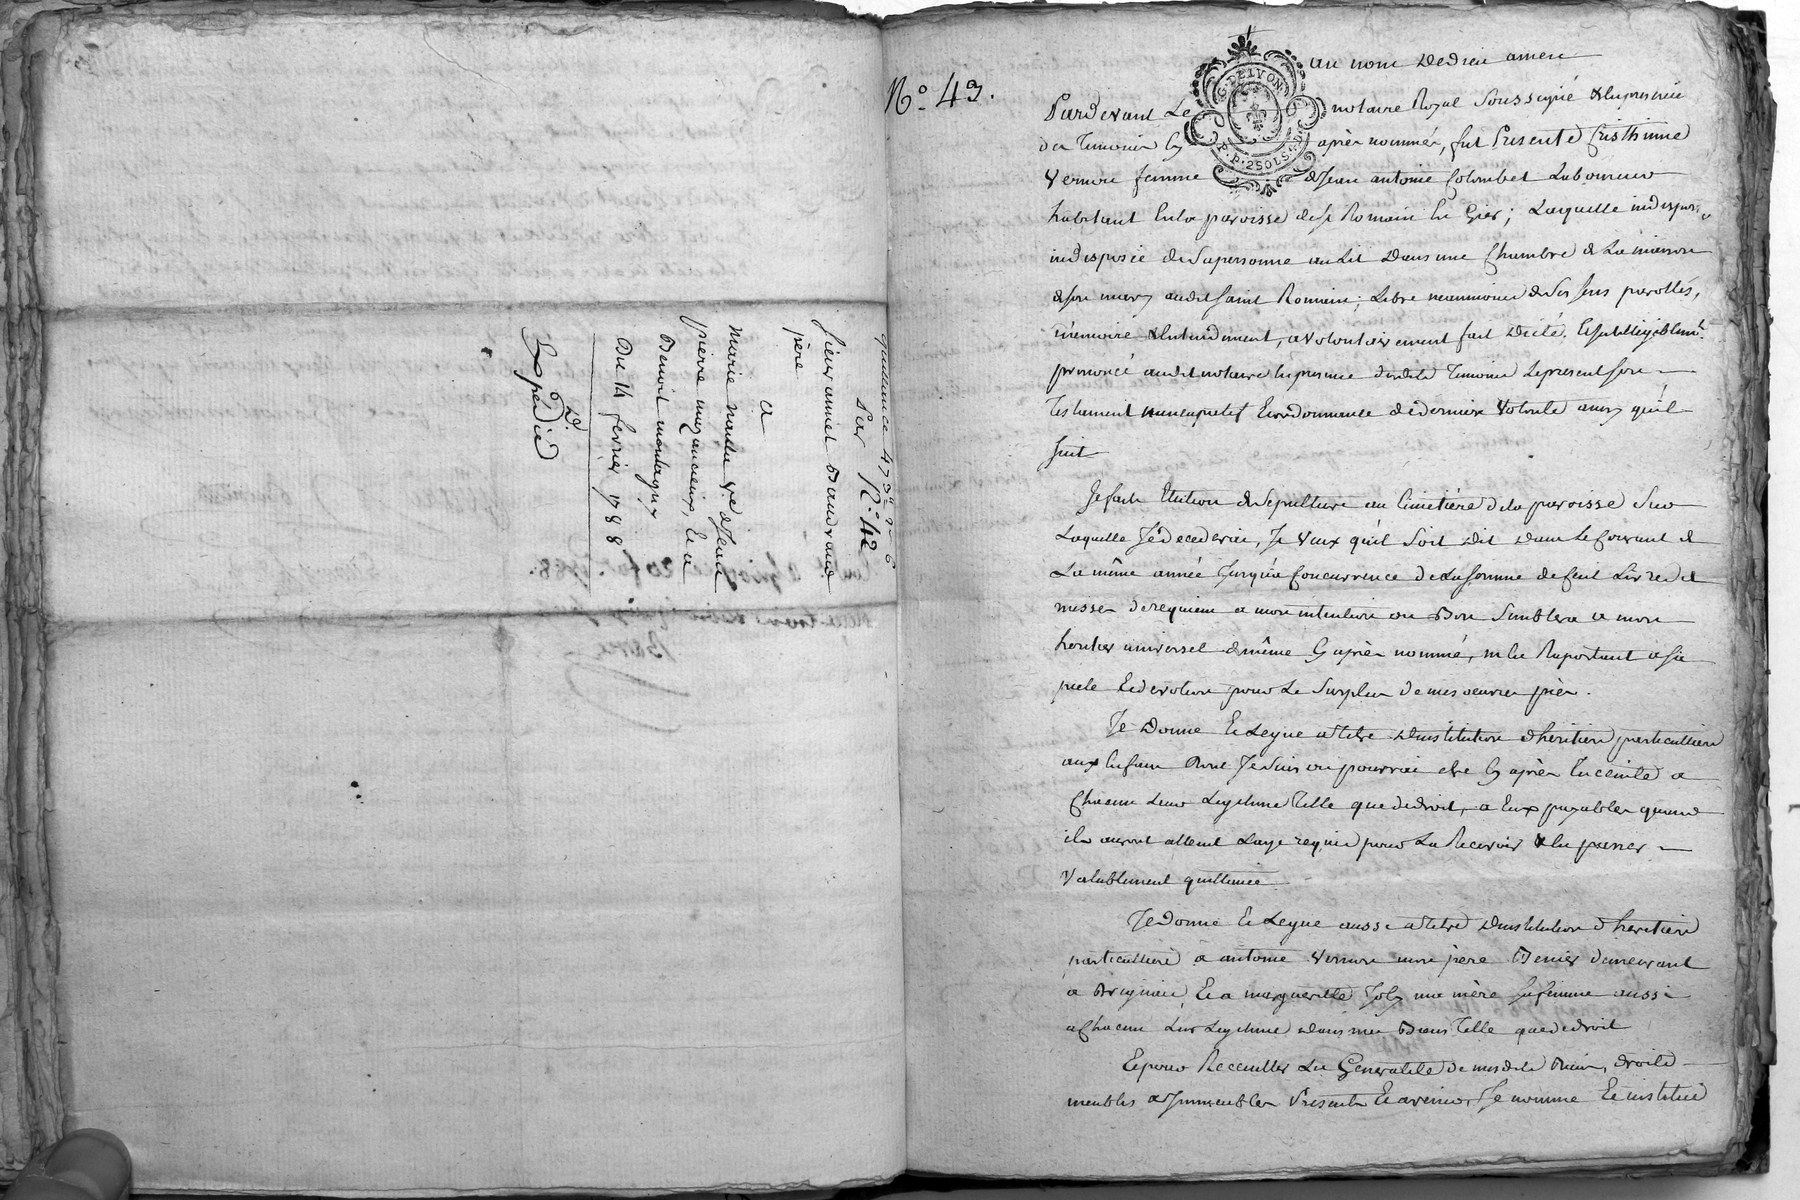 quittance 473ᵗᵗ 2 s 6
Par N.° 42
sieur annet Baudrand
père
a
Marie nardu v.e de Jean
pierre muzancieux, Et a
Benoit montagny
Du 14 fevrier 1788
Expedié
20 fev. 1788.
N.° 43.
G. DE LYON
P. P. 2 SOLS
au nom de dieu amen
Pardevant Le notaire Royal Soussigné & En presence
des Temoins Cy après nommés, fut Presente Cristhinne
Vernon femme de Jean antoine Colombet Laboureur
habitant En la paroisse de St Romain En Gier; Laquelle
indisposée de Sa personne au Lit dans une Chambre de La maison
de son mary audit Saint Romain; Libre neanmoins de Ses sens parolles,
mémoire & Entendement, a volontairement fait dicté, Et Intelligiblement
prononcé audit notaire En presence desdits Temoins Le present Son
Testament nuncupatif Et ordonnance de derniere Volonté ainsy qu'il
suit
Je fais Election de Sepulture au Cimetière de la paroisse Sur
Laquelle Je decederai, Je Veux qu'il Soit dit dans Le Courant de
La même année Jusqu'a Concurrence de La Somme de Cent Livres de
messes de requiem a mon intention ou Bon Semblera a mon
heritier universel de même Cy après nommé, m'En Raportant a Sa
pieté Et devotion pour Le Surplus de mes oeuvres pies.
Je Donne Et Legue a titre d'institution d'heritiers particulliers
aux Enfans dont Je Suis ou pourrai etre Cy après Enceinte a
Chacun Leur Legitime Telle que de droit, a Eux payables quand
ils auront atteint L'age requis pour La Recevoir & En passer
Valablement quittance
Je donne Et Legue aussi a titre d'institution d'heritiers
particulliers a antoine Vernon mon père demeurant
a Brignais, Et a margueritte Joly ma mère Sa femme aussi
a Chacun Leur Legitime dans mes Biens Telle que de droit
Et pour Receuillir La Generalité de mesdits Biens, droits
meubles & Immeubles Presents Et avenir, Je nomme Et institue